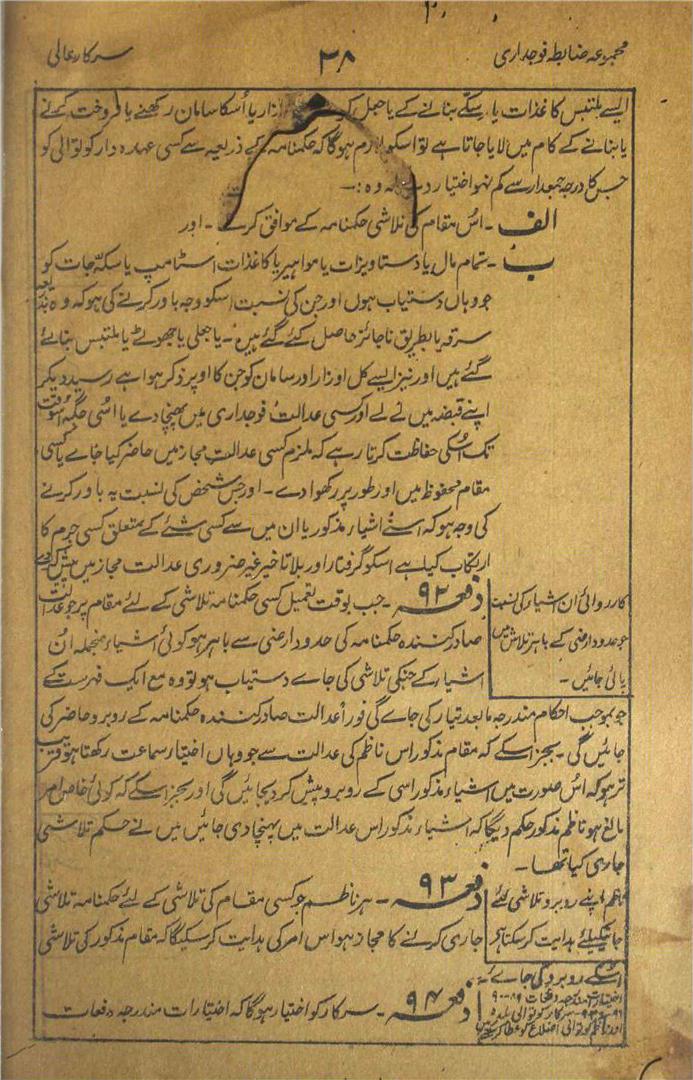 مجموعہ ضابطہ فوجداری
۳۸
سرکارعالی
ایسے ملتبس کاغذات یا سکے بنانے کے یا جعل اوزار یا اُسکا سامان رکھنے یا فروخت کرنے
یا بنانے کے کام میں لایا جاتا ہے تو اسکو لازم ہوگا کہ حکمنامہ کے ذریعہ سے کسی عہدہ دار کوتوالی کو
جس کا درجہ جمعدار سے کم نہو اختیار دے کہ وہ :—
الف ۔ اس مقام کی تلاشی حکمنامہ کے موافق کرے ۔ اور
ب ۔ تمام مال یا دستاویزات یا مواہیر یا کاغذات اسٹامپ یا سکہ جات کو
جو وہاں دستیاب ہوں اور جن کی نسبت اسکو وجہ باور کرنے کی ہو کہ وہ
سرقہ یا بطریق ناجائز حاصل کئے گئے ہیں ۔ یا جعلی یا جھوٹے یا ملتبس بنائے
گئے ہیں اور نیز ایسے کل اوزار اور سامان کو جن کا اوپر ذکر ہوا ہے رسید دیکر
اپنے قبضہ میں لے لے اور کسی عدالت فوجداری میں پہنچا دے یا اسی جگہ اسوقت
تک اسکی حفاظت کرتا رہے کہ ملزم کسی عدالت مجاز میں حاضر کیا جاے یا کسی
مقام محفوظ میں اور طور پر رکھوا دے ۔ اور جس شخص کی نسبت یہ باور کرنے
کی وجہ ہو کہ اسنے اشیاء مذکور یا ان میں سے کسی شئے کے متعلق کسی جرم کا
ارتکاب کیا ہے اسکو گرفتار اور بلا تاخیر غیر ضروری عدالت مجاز میں پیش کرے
کارروائی ان اشیاء کی نسبت
جو حدود ارضی کے باہر تلاش میں
پائی جائیں ۔
دفعہ ۹۲ ۔ جب بوقت تعمیل کسی حکمنامہ تلاشی کے لئے مقام پر جو عدالت
صادر کنندہ حکمنامہ کی حدود ارضی سے باہر ہو کوئی اشیاء منجملہ ان
اشیاء کے جنکی تلاشی کی جاے دستیاب ہو تو وہ مع ایک فہرست کے
جو بموجب احکام مندرجہ مابعد تیار کی جاے گی فوراً عدالت صادر کنندہ حکمنامہ کے روبرو حاضر کی
جائیں گی ۔ بجز اسکے کہ مقام مذکور اس ناظم کی عدالت سے جو وہاں اختیار سماعت رکھتا ہو قریب
تر ہو کہ اس صورت میں اشیاء مذکور اسی کے روبرو پیش کر دیجائیں گی اور بجز اسکے کہ کوئی خاص امر
مانع ہو ناظم مذکور حکم دیگا کہ اشیاء مذکور اس عدالت میں پہنچا دی جائیں جس نے حکم تلاشی
جاری کیا تھا ۔
ناظم اپنے روبرو تلاشی لئے
جانیکیلئے ہدایت کر سکتا ہے
دفعہ ۹۳ ۔ ہر ناظم جو کسی مقام کی تلاشی کے لئے حکمنامہ تلاشی
جاری کرنے کا مجاز ہو اس امر کی ہدایت کر سکیگا کہ مقام مذکور کی تلاشی
اسکے روبرو کی جاے ۔
دفعہ ۹۴ ۔ سرکار کو اختیار ہوگا کہ اختیارات مندرجہ دفعات